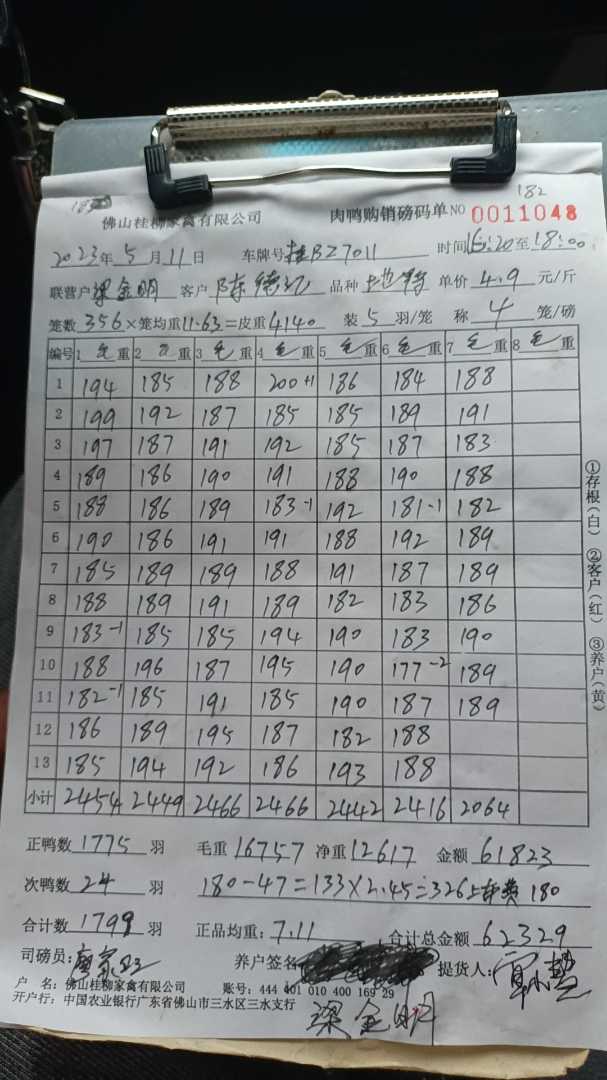 182
佛山桂柳家禽有限公司 肉鸭购销磅码单 NO 0011048
2023年5月11日 车牌号 桂BZ7011 时间16:20至18:00
联营户 梁金明 客户 陈德 品种 单价 4.9 元/斤
笼数 356 × 笼均重 11.63 = 皮重 4140 装 5 羽/笼 称 4 笼/磅
编号 1 毛重 2 毛重 3 毛重 4 毛重 5 毛重 6 毛重 7 毛重 8 毛重
1 194 185 188 200+1 186 184 188
2 199 192 187 185 185 189 191
3 197 187 191 192 185 187 183
4 189 186 190 191 188 190 188
5 188 186 189 183-1 192 181-1 182
6 190 186 191 191 188 192 189
7 185 189 189 188 191 187 189
8 188 189 191 189 182 183 186
9 183-1 185 185 194 190 183 190
10 188 196 187 195 190 177-2 189
11 182-1 185 191 185 190 187 189
12 186 189 195 187 182 188
13 185 194 192 186 193 188
小计 2454 2449 2466 2466 2442 2416 2064
①存根(白) ②客户(红) ③养户(黄)
正鸭数 1775 羽 毛重 16757 净重 12617 金额 61823
次鸭数 24 羽 180-47=133×2.45=326 车费 180
合计数 1799 羽 正品均重: 7.11 合计总金额 62329
司磅员: 养户签名 提货人:
户 名: 佛山桂柳家禽有限公司 账号: 444 401 010 400 169 29
开户行: 中国农业银行广东省佛山市三水区三水支行
梁金明